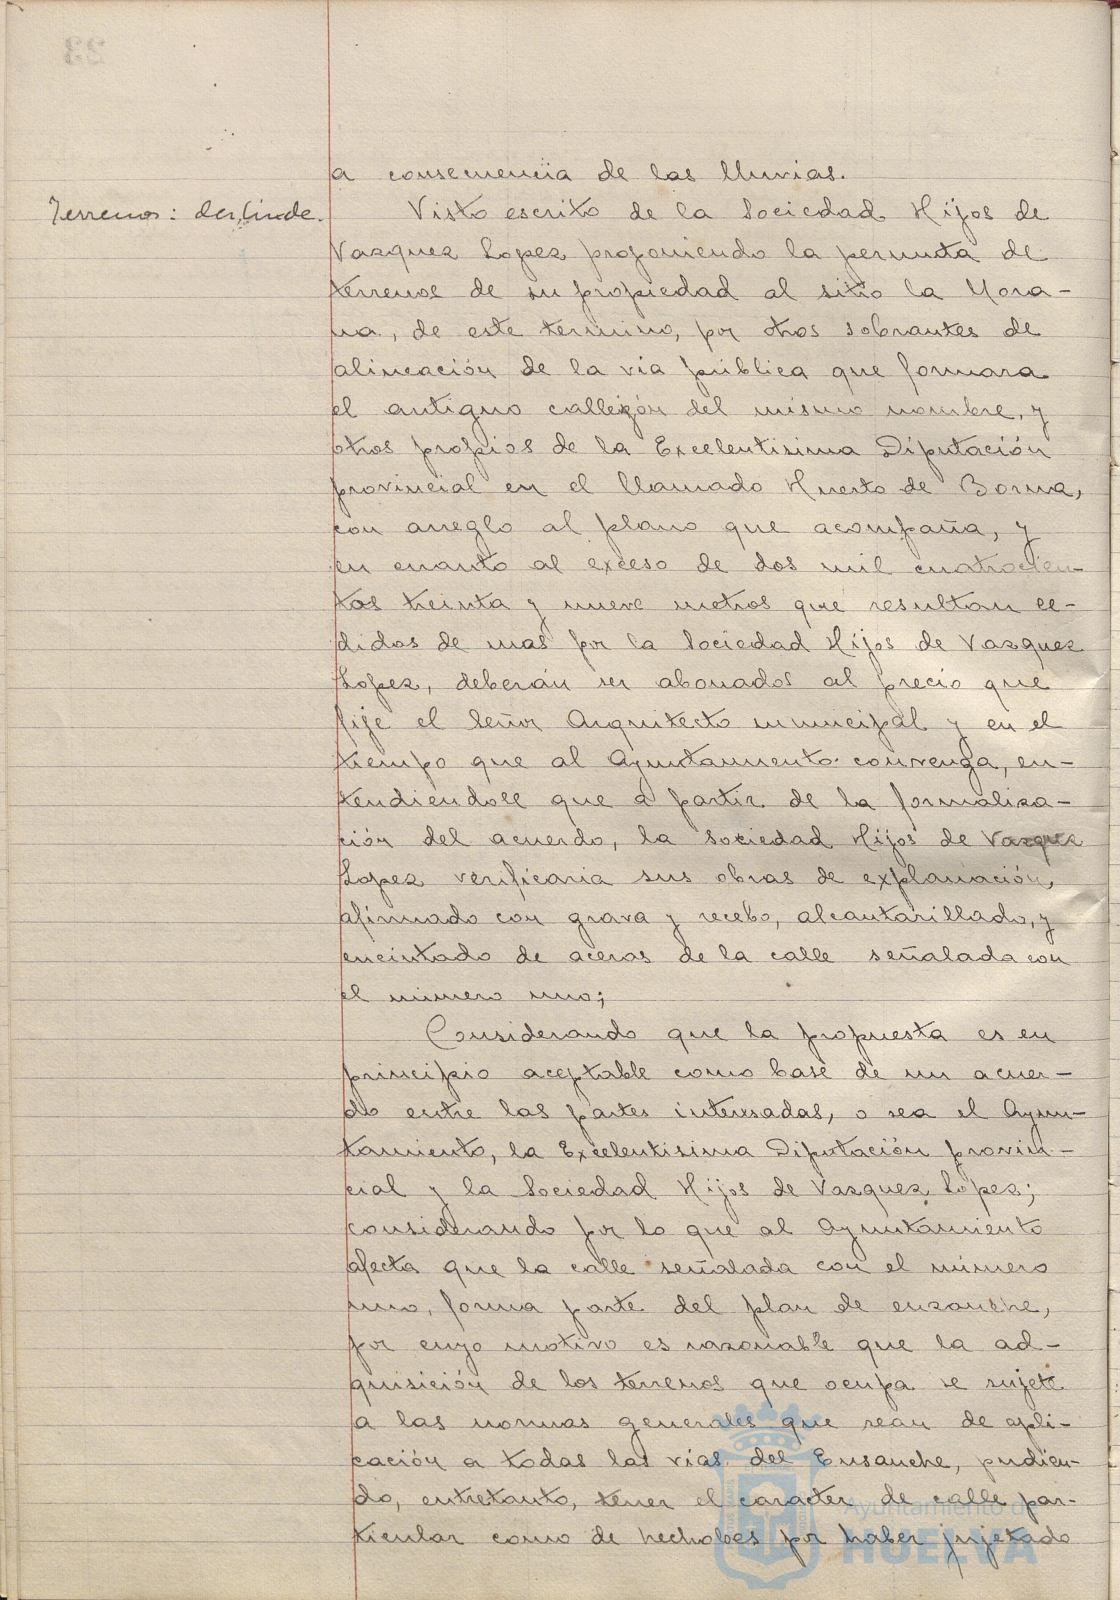 a consecuencia de las lluvias.
Terrenos: deslinde.
Visto escrito de la Sociedad Hijos de
Vazquez Lopez proponiendo la permuta de
terrenos de su propiedad al sitio la Mora-
na, de este termino, por otros sobrantes de
alineación de la via pública que formara
el antiguo callejón del mismo nombre, y
otros propios de la Excelentisima Diputación
provincial en el llamado Huerto de Borna,
con arreglo al plano que acompaña, y
en cuanto al exceso de dos mil cuatrocien-
tos treinta y nueve metros que resultan ce-
didos de mas por la Sociedad Hijos de Vazquez
Lopez, deberán ser abonados al precio que
fije el Señor Arquitecto municipal y en el
tiempo que al Ayuntamiento convenga, en-
tendiéndose que a partir de la formaliza-
ción del acuerdo, la Sociedad Hijos de Vazquez
Lopez verificaria sus obras de explanación,
afirmado con grava y recebo, alcantarillado, y
encintado de aceras de la calle señalada con
el número uno;
Considerando que la propuesta es en
principio aceptable como base de un acuer-
do entre las partes interesadas, o sea el Ayun-
tamiento, la Excelentisima Diputación provin-
cial y la Sociedad Hijos de Vazquez Lopez;
considerando por lo que al Ayuntamiento
afecta que la calle señalada con el número
uno, forma parte del plan de ensanche,
por cuyo motivo es razonable que la ad-
quisición de los terrenos que ocupa se sujete
a las normas generales que sean de apli-
cación a todas las vias del Ensanche, pudien-
do, entretanto, tener el caracter de calle par-
ticular como de hecho es por haber sujetado
Ayuntamiento de
HUELVA